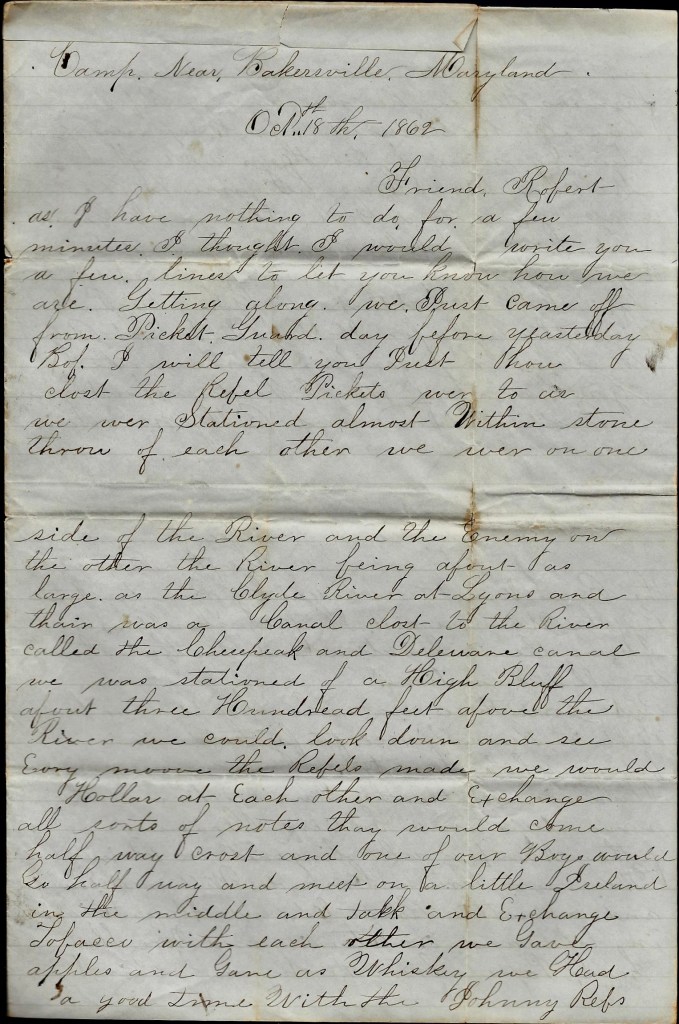 Camp. Near, Bakersville, Maryland.
Oct.. 18 th, 1862
Friend, Robert
as I have nothing to do, for, a few
minutes. I thought. I would write you
a few. lines to let you know how we
are. Getting along. we. Just came off
from. Picket. Guard. day before yeasterday
Bob. I will tell you Just how
clost the Rebel Pickets wer to us
we wer Stationed almost Within stone
throw of each other we wer on one
side of the River and the Enemy on
the other the River being about as
large. as the Clyde River at Lyons and
thair was a Canal clost to the River
called the Cheepeak and Deleware canal
we was stationed of a High Bluff
about three Hundread feet above the
River we could. look down and see
Evry moove the Rebels made we would
Hollar at Each other and Exchange
all sorts of notes thay would come
half way crost and one of our Boys would
Go half way and meet on a little Iseland
in the middle and talk and Exchange
Tobacco with each other we Gave
apples and Gave us Whiskey we Had
a good time With the Johnny Rebs